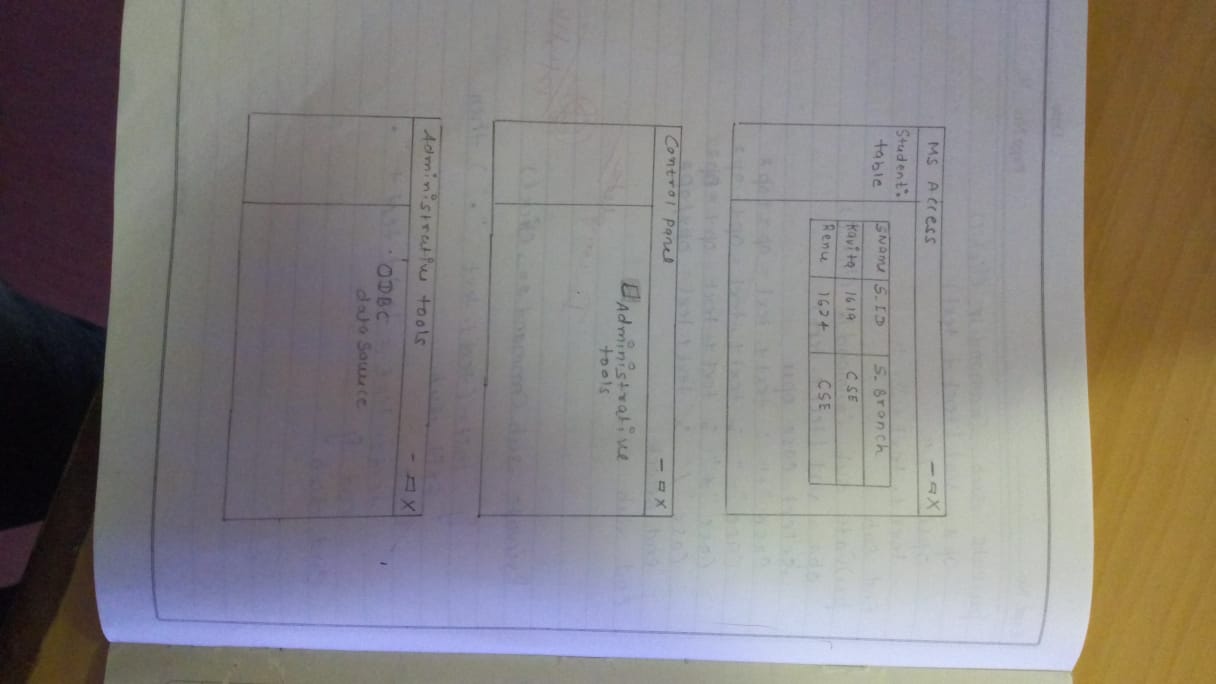 MS Access - □ X
Student:
table
SName S.ID S. Branch
Kavita 1619 CSE
Renu 1627 CSE
Control panel - □ X
Administrative
tools
Administrative tools - □ X
ODBC
data source